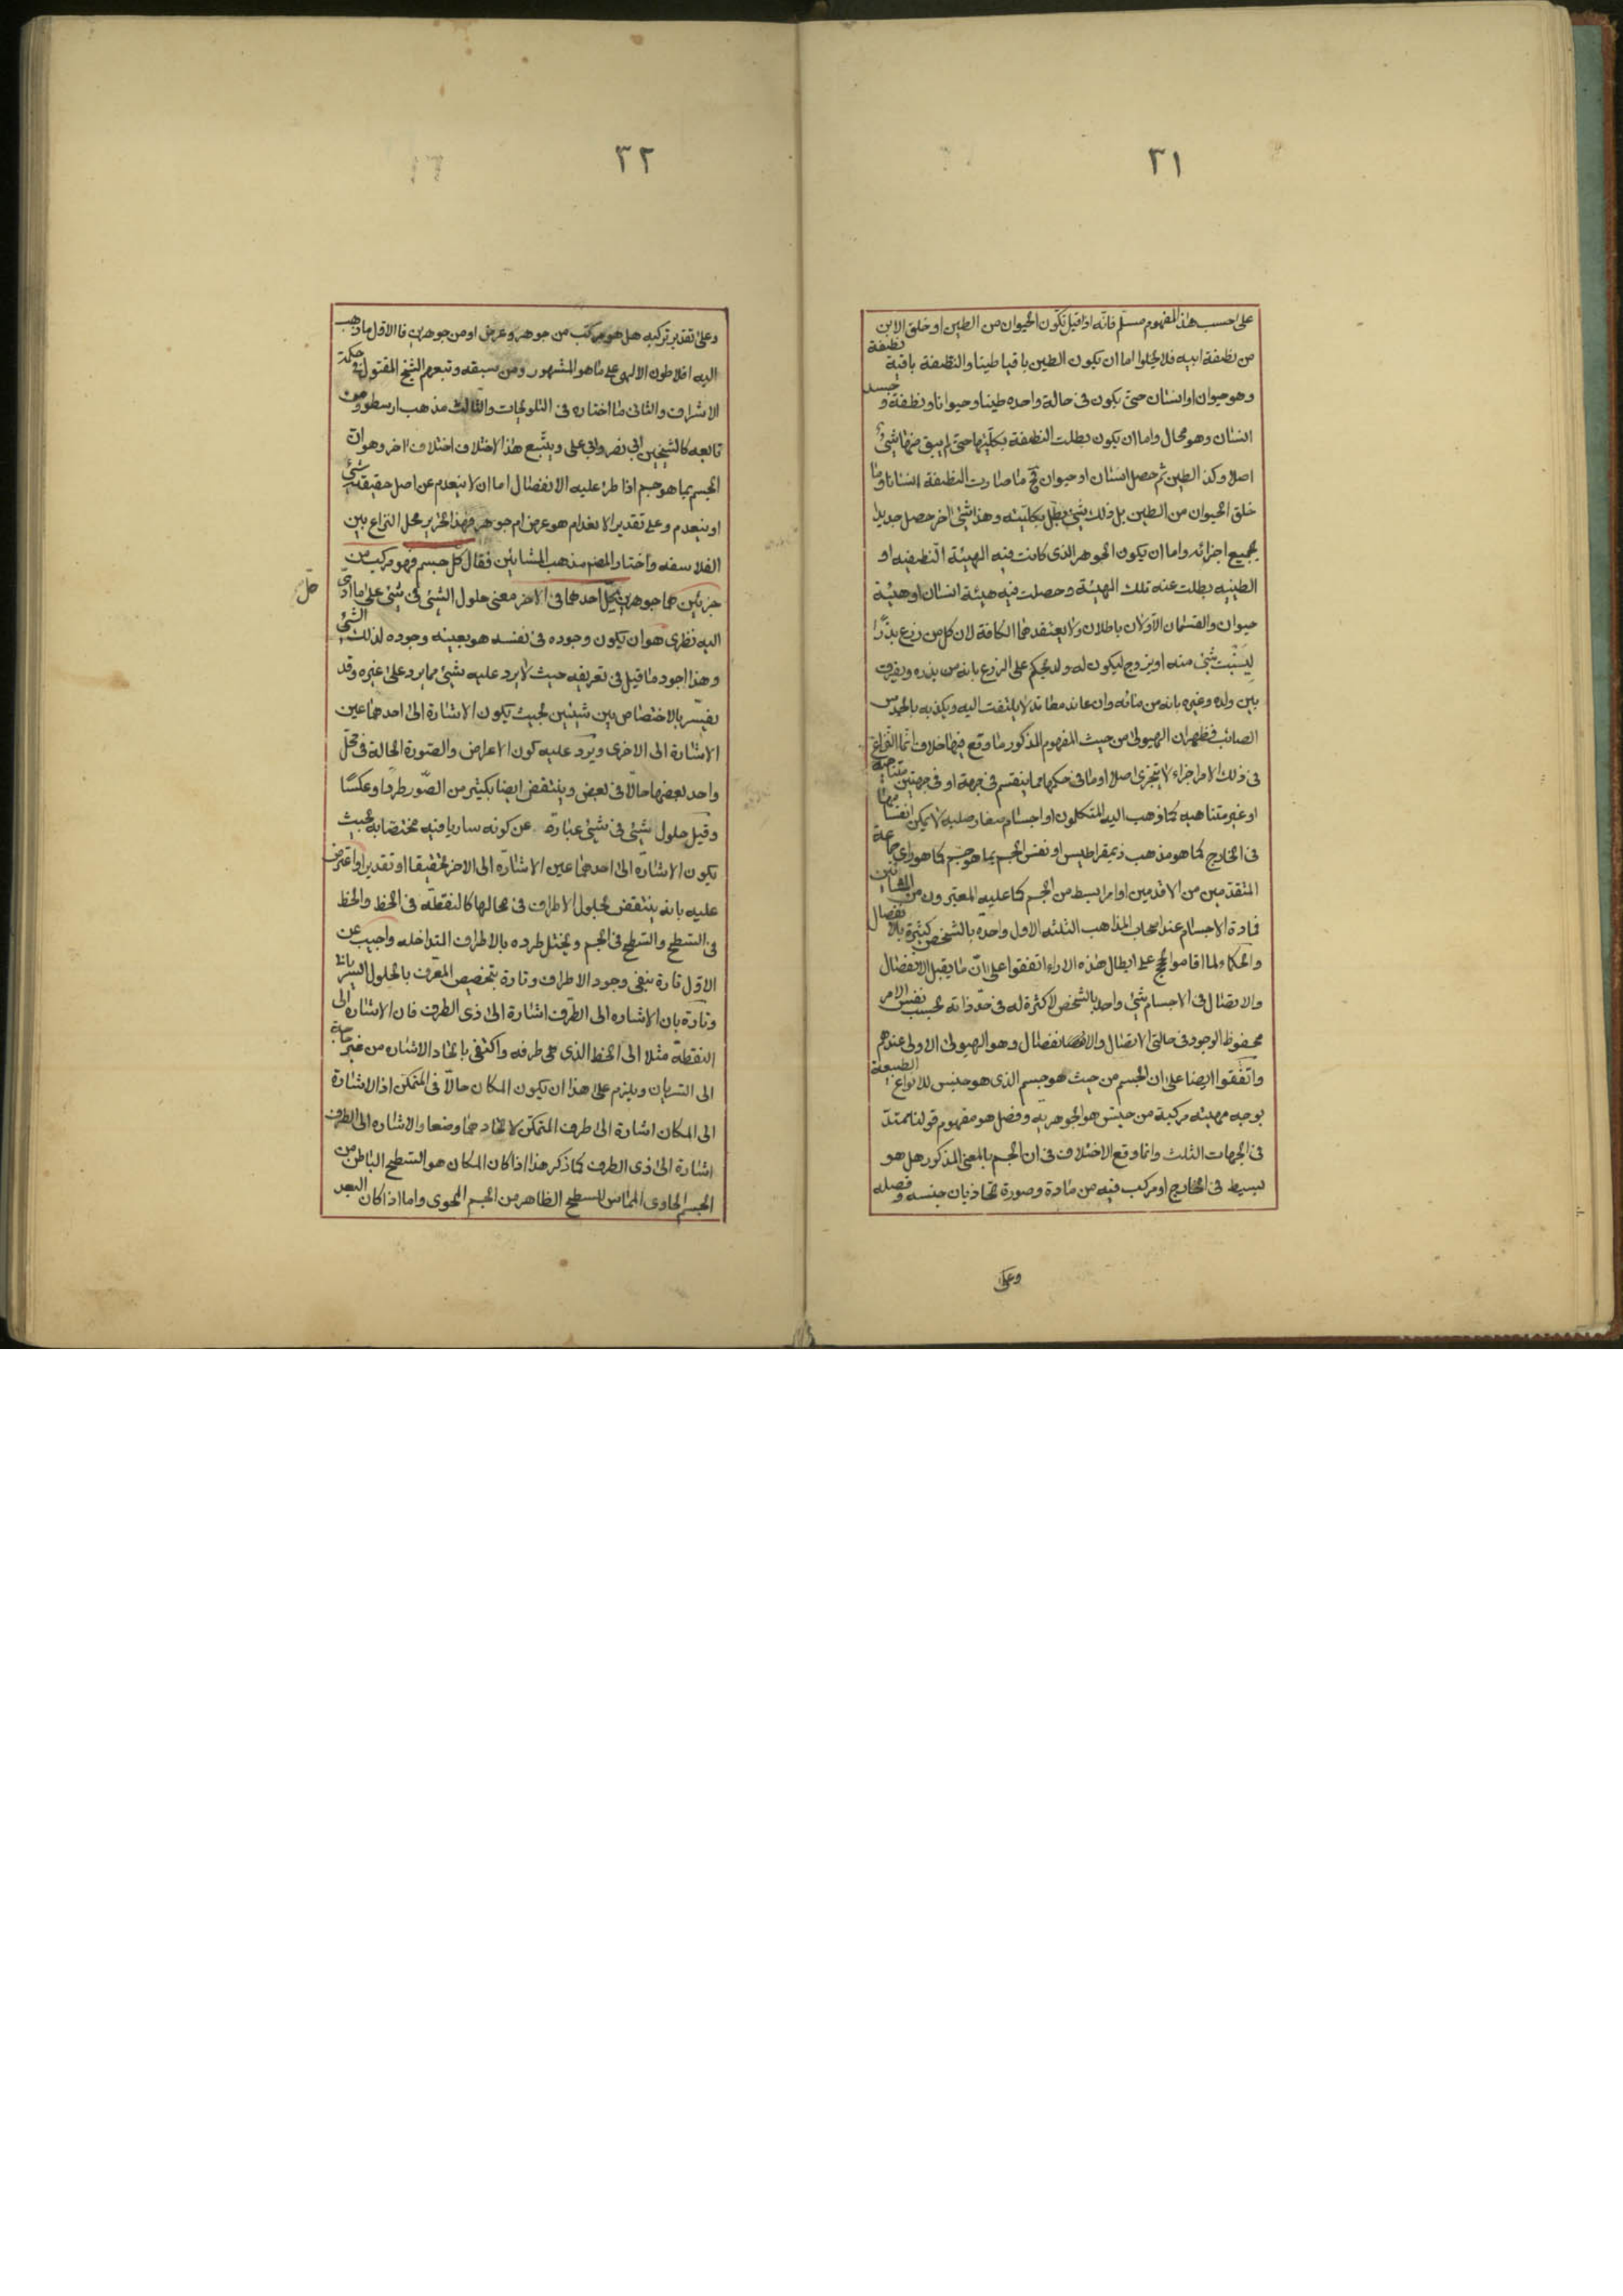 ٣١
على حسب هذا المفهوم مسلّم فانّه اذا قيل تكوّن الحيوان من الطين او خلق الابن
من نطفة ابيه فلا يخلوا اما ان يكون الطين باقيا طينا والنطفة باقية نطفة
وهو حيوان او انسان حتى يكون فى حالة واحده طينا وحيوانا ونطفة و جسد
انسان وهو محال واما ان يكون بطلت النطفة بكليّتها حتى لم يبق منها شئ
اصلا وكذ الطين ثم حصل انسان او حيوان فح ما صارت النطفة انسانا وما
خلق الحيوان من الطين بل ذلك شئ بطل بكليته وهذا شئ اخر حصل جديدا
بجميع اجزائه واما ان يكون الجوهر الذى كانت فيه الهيئة النطفيه او
الطينيه بطلت عنه تلك الهيئة وحصلت فيه هيئة انسان او هيئة
حيوان والقسمان الاوّلان باطلان ولا يعتقدهما الكافة لان كل من زرع بذرًا
ليَنبت شئ منه او يزوج ليكون له ولد يحكم على الزرع بانه من بذره ويفرق
بين ولده وغيره بانه من مائه وان عاند معاند لا يلتفت اليه ويكذبه بالحدس
الصائب فظهر ان الهيولى من حيث المفهوم المذكور ما وقع فيها خلاف انّما النزاع
فى ذلك الامر اجزاء لا يتجزى اصلا او ما فى حكمها مما ينقسم فى جهة او فى جهتين متناهية
او غير متناهيه كما ذهب اليه المتكلمون او اجسام صغار صلبه لا يمكن انفسامها
فى الخارج كما هو مذهب ذيمقراطيس او نفس الجسم بما هو جسم كما هو راى جماعة
المتقدّمين من الاقدمين او امر ابسط من الجسم كما عليه المعتبرون من المشائين
فمادة الاجسام عند اصحاب المذاهب الثلثه الاول واحدة بالشخص كثيرة بالانفصال
والحكماء لما اقاموا حجج على ابطال هذه الاراء اتفقوا على انّ ما يقبل الانفصال
والاتصال فى الاجسام شئ واحد بالشخص لا كثرة له فى حدّ ذاته بحسب نفس الامر
محفوظ الوجود فى حالتى الاتصال والانفصال وهو الهيولى الاولى عندهم
واتّفقوا ايضا على ان الجسم من حيث هو جسم الذى هو جنس للانواع الطبيعة
يوجه مهيته مركبة من جنس هو الجوهريّه وفصل هو مفهوم قولنا ممتدّ
فى الجهات الثلث وانما وقع الاختلاف فى ان الجسم بالمعنى المذكور هل هو
بسيط فى الخارج او مركب فيه من مادة وصورة تحاذيان جنسه و فصله
وعلى
٣٢
وعلى تقدير تركبه هل هو مركّب من جوهر وعرض او من جوهرين فا الاوّل ما ذهب
اليه افلاطون الالهى على ما هو المشهور ومن سبقه وتبعهم الشيخ المقتول فى حكمة
الاشراق والثانى ما اختاره فى التلويحات والثالث مذهب ارسطو ومن
تابعه كالشيخين ابى نصر وابى على ويتّبع هذا الاختلاف اختلاف اخر وهو ان
الجسم بما هو جسم اذا طرء عليه الانفصال اما ان لا ينعدم عن اصل حقيقته شئ
او ينعدم وعلى تقدير الانعدام هو عرض ام جوهر فهذا تحرير محل النزاع بين
الفلاسفه واختار المصه مذهب المشائين فقال كل جسم فهو مركب من
جزئين هما جوهرين يحلّ احدهما فى الاخر معنى حلول الشئ فى شئ على ما ادّى
حلّ
اليه نظرى هو ان يكون وجوده فى نفسه هو بعينه وجوده لذلك الشئ
وهذا اجود ما قيل فى تعريفه حيث لا يرد عليه شئ مما يرد على غيره وقد
يفسّر بالاختصاص بين شيئين بحيث يكون الاشارة الى احدهما عين
الاشارة الى الاخرى ويرد عليه كون الاعراض والصّورة الحالة فى محلّ
واحد بعضها حالّا فى بعض وينتقض ايضا بكثير من الصّور طردا وعكسًا
وقيل حلول شئ فى شئ عبارة عن كونه ساريا فيه مختصا به بحيث
يكون الاشارة الى احدهما عين الاشارة الى الاخر تحقيقا او تقديرا واعترض
عليه بانه ينتقض بحلول الاطراف فى محالها كالنقطة فى الخط والخط
فى السّطح والسّطح فى الجسم ويختل طرده بالاطراف المتداخله واجيب عن
الاوّل تارة بنفى وجود الاطراف وتارة بتخصيص المعرّف بالحلول السّريانى
وتارة بان الاشاره الى الطّرف اشارة الى ذى الطرف فان الاشارة الى
النقطة مثلا الى الخط الذى هى طرفه واكتفى باتحاد الاشاره من غير حاجة
الى السّريان ويلزم على هذا ان يكون المكان حالّا فى المتمكّن اذ الاشارة
الى المكان اشارة الى طرف المتمكّن لاتحادهما وضعا والاشاره الى الطرف
اشارة الى ذى الطرف كما ذكر هذا اذا كان المكان هو السّطح الباطن من
الجسم الحاوى المماس للسطح الظاهر من الجسم المحوى واما اذا كان البعد